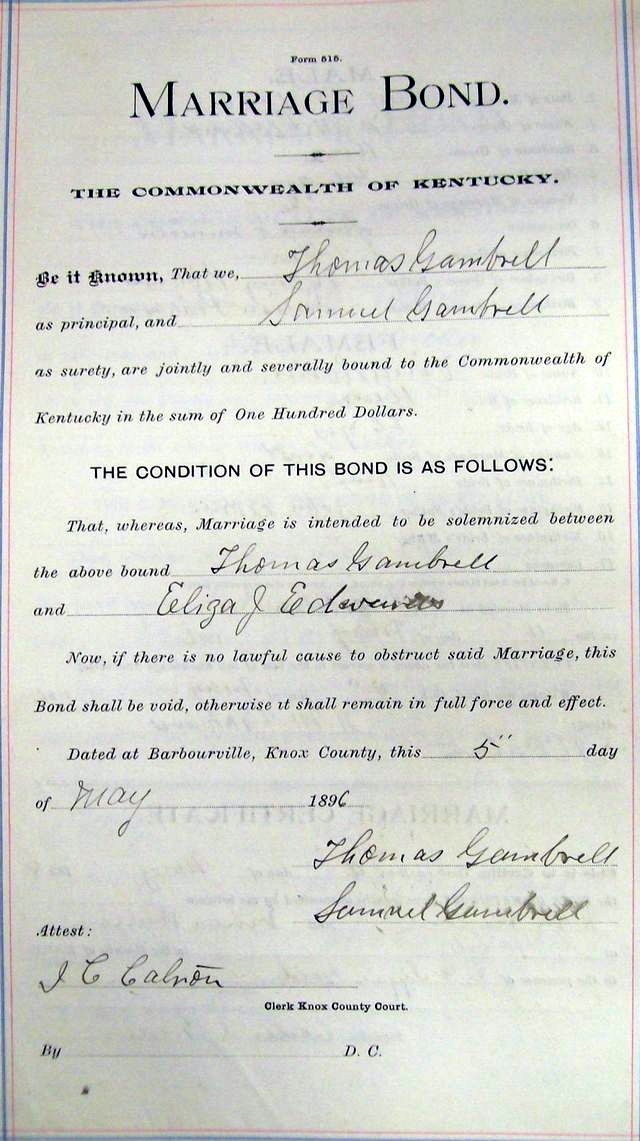 Form 515.
MARRIAGE BOND.
THE COMMONWEALTH OF KENTUCKY.
Be it Known, That we, Thomas Gambrell
as principal, and Samuel Gambrell
as surety, are jointly and severally bound to the Commonwealth of
Kentucky in the sum of One Hundred Dollars.
THE CONDITION OF THIS BOND IS AS FOLLOWS:
That, whereas, Marriage is intended to be solemnized between
the above bound Thomas Gambrell
and Eliza J
Now, if there is no lawful cause to obstruct said Marriage, this
Bond shall be void, otherwise it shall remain in full force and effect.
Dated at Barbourville, Knox County, this 5" day
of May 1896
Thomas Gambrell
Samuel Gambrell
Attest:
Clerk Knox County Court.
By D. C.